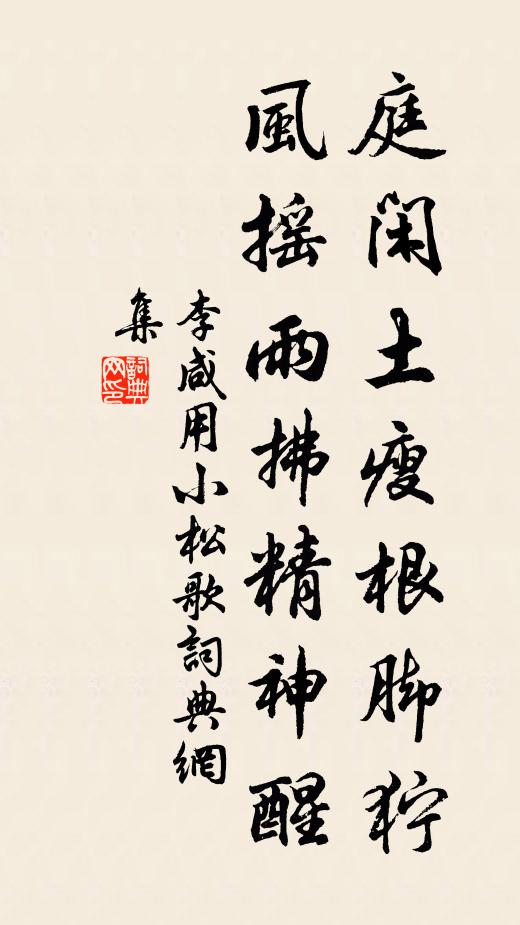 庭闲土瘦根脚狞
風摇雨拂精神醒
李咸用小松歌詞典網
集
詞典网印